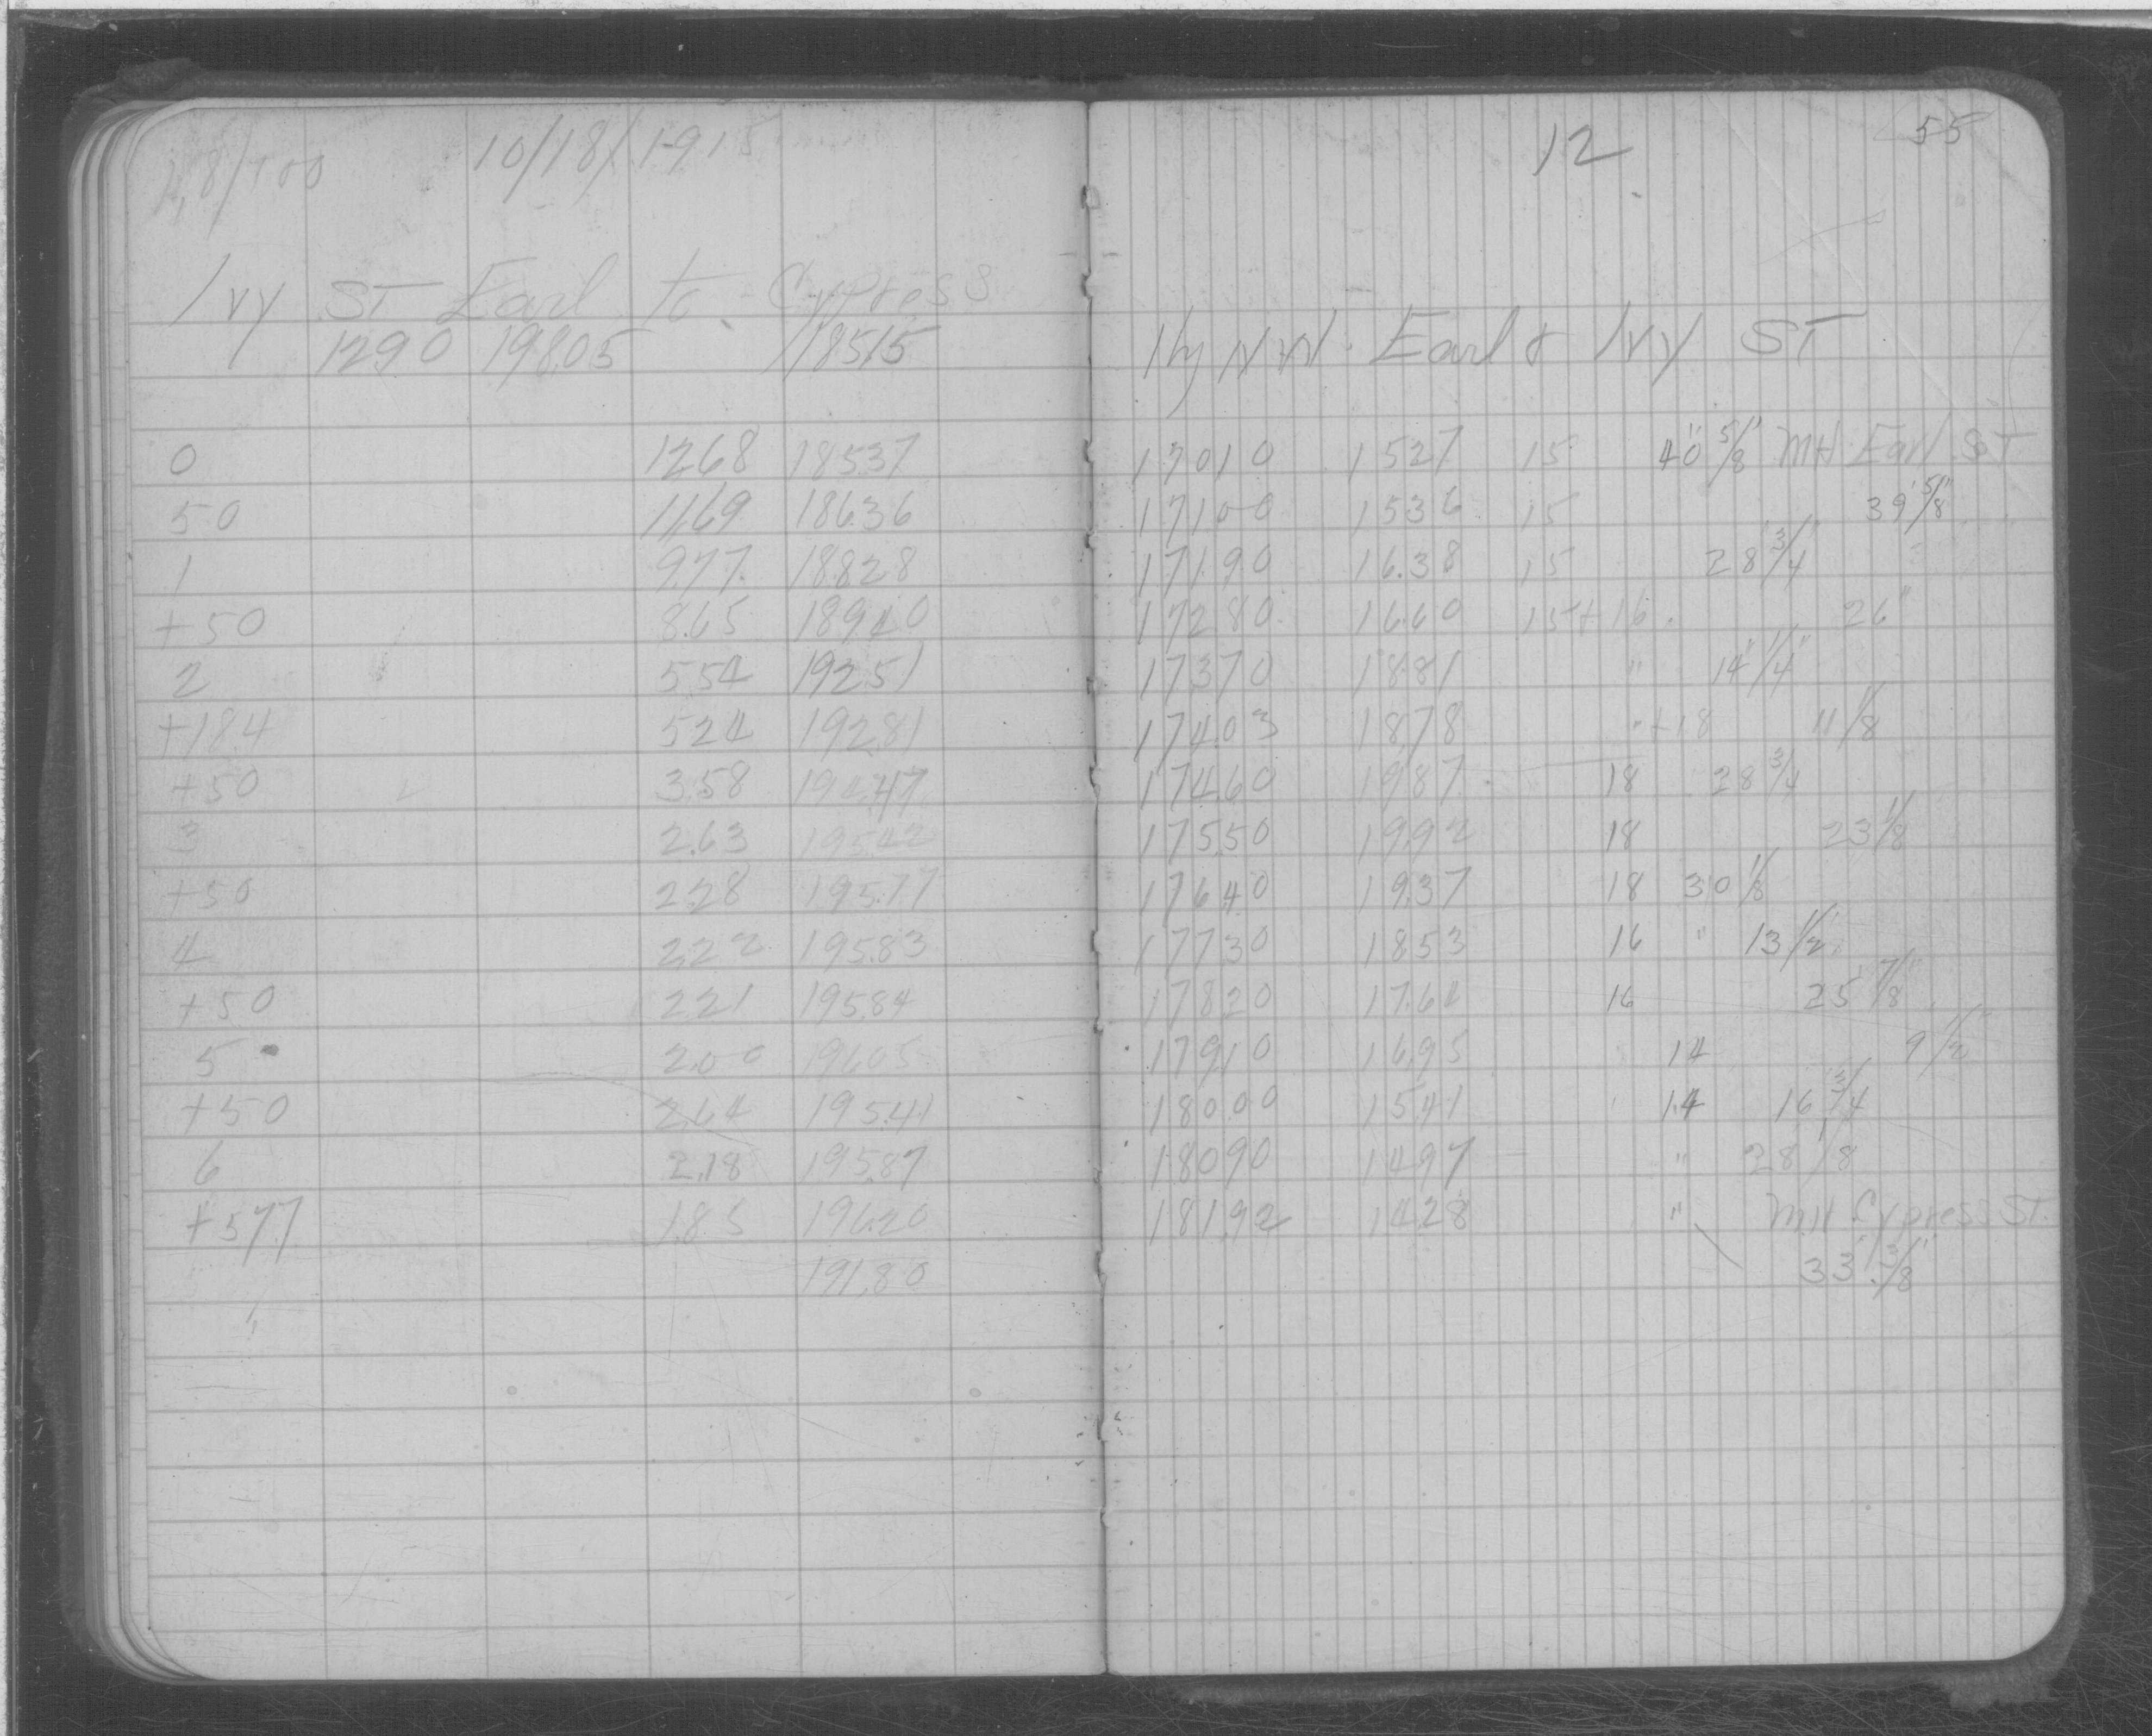 1,8/100 10/18/1915
Ivy ST Earl to Cypress
1290 198.05 185.15
0 1268 185.37
50 11.69 186.36
1 9.77 188.28
+50 8.65 189.40
2 5.54 192.51
+18.4 5.24 192.81
+50 3.58 194.47
3 2.63 195.42
+50 2.28 195.77
4 2.22 195.83
+50 2.21 195.84
5 2.00 196.05
+50 2.64 195.41
6 2.18 195.87
+57.7 1.85 196.20
191.80
12 55
Hy N W Earl & Ivy ST
170.10 15.27 15 40" 5/8 MH Earl ST
171.00 15.36 15 39 5/8"
171.90 16.38 15 28 3/4"
172.80 16.60 15+16 26"
173.70 18.81 " 14" 1/4"
174.03 18.78 "+18 11 1/8
174.60 19.87 18 28 3/4
175.50 19.92 18 23 1/8
176.40 19.37 18 30 1/8
177.30 18.53 16 " 13 1/2"
178.20 17.64 16 25 7/8"
179.10 16.95 14 9 1/2"
180.00 15.41 14 16 3/4
180.90 14.97 " 28 1/8
181.92 14.28 " MH Cypress ST.
33 3/8"